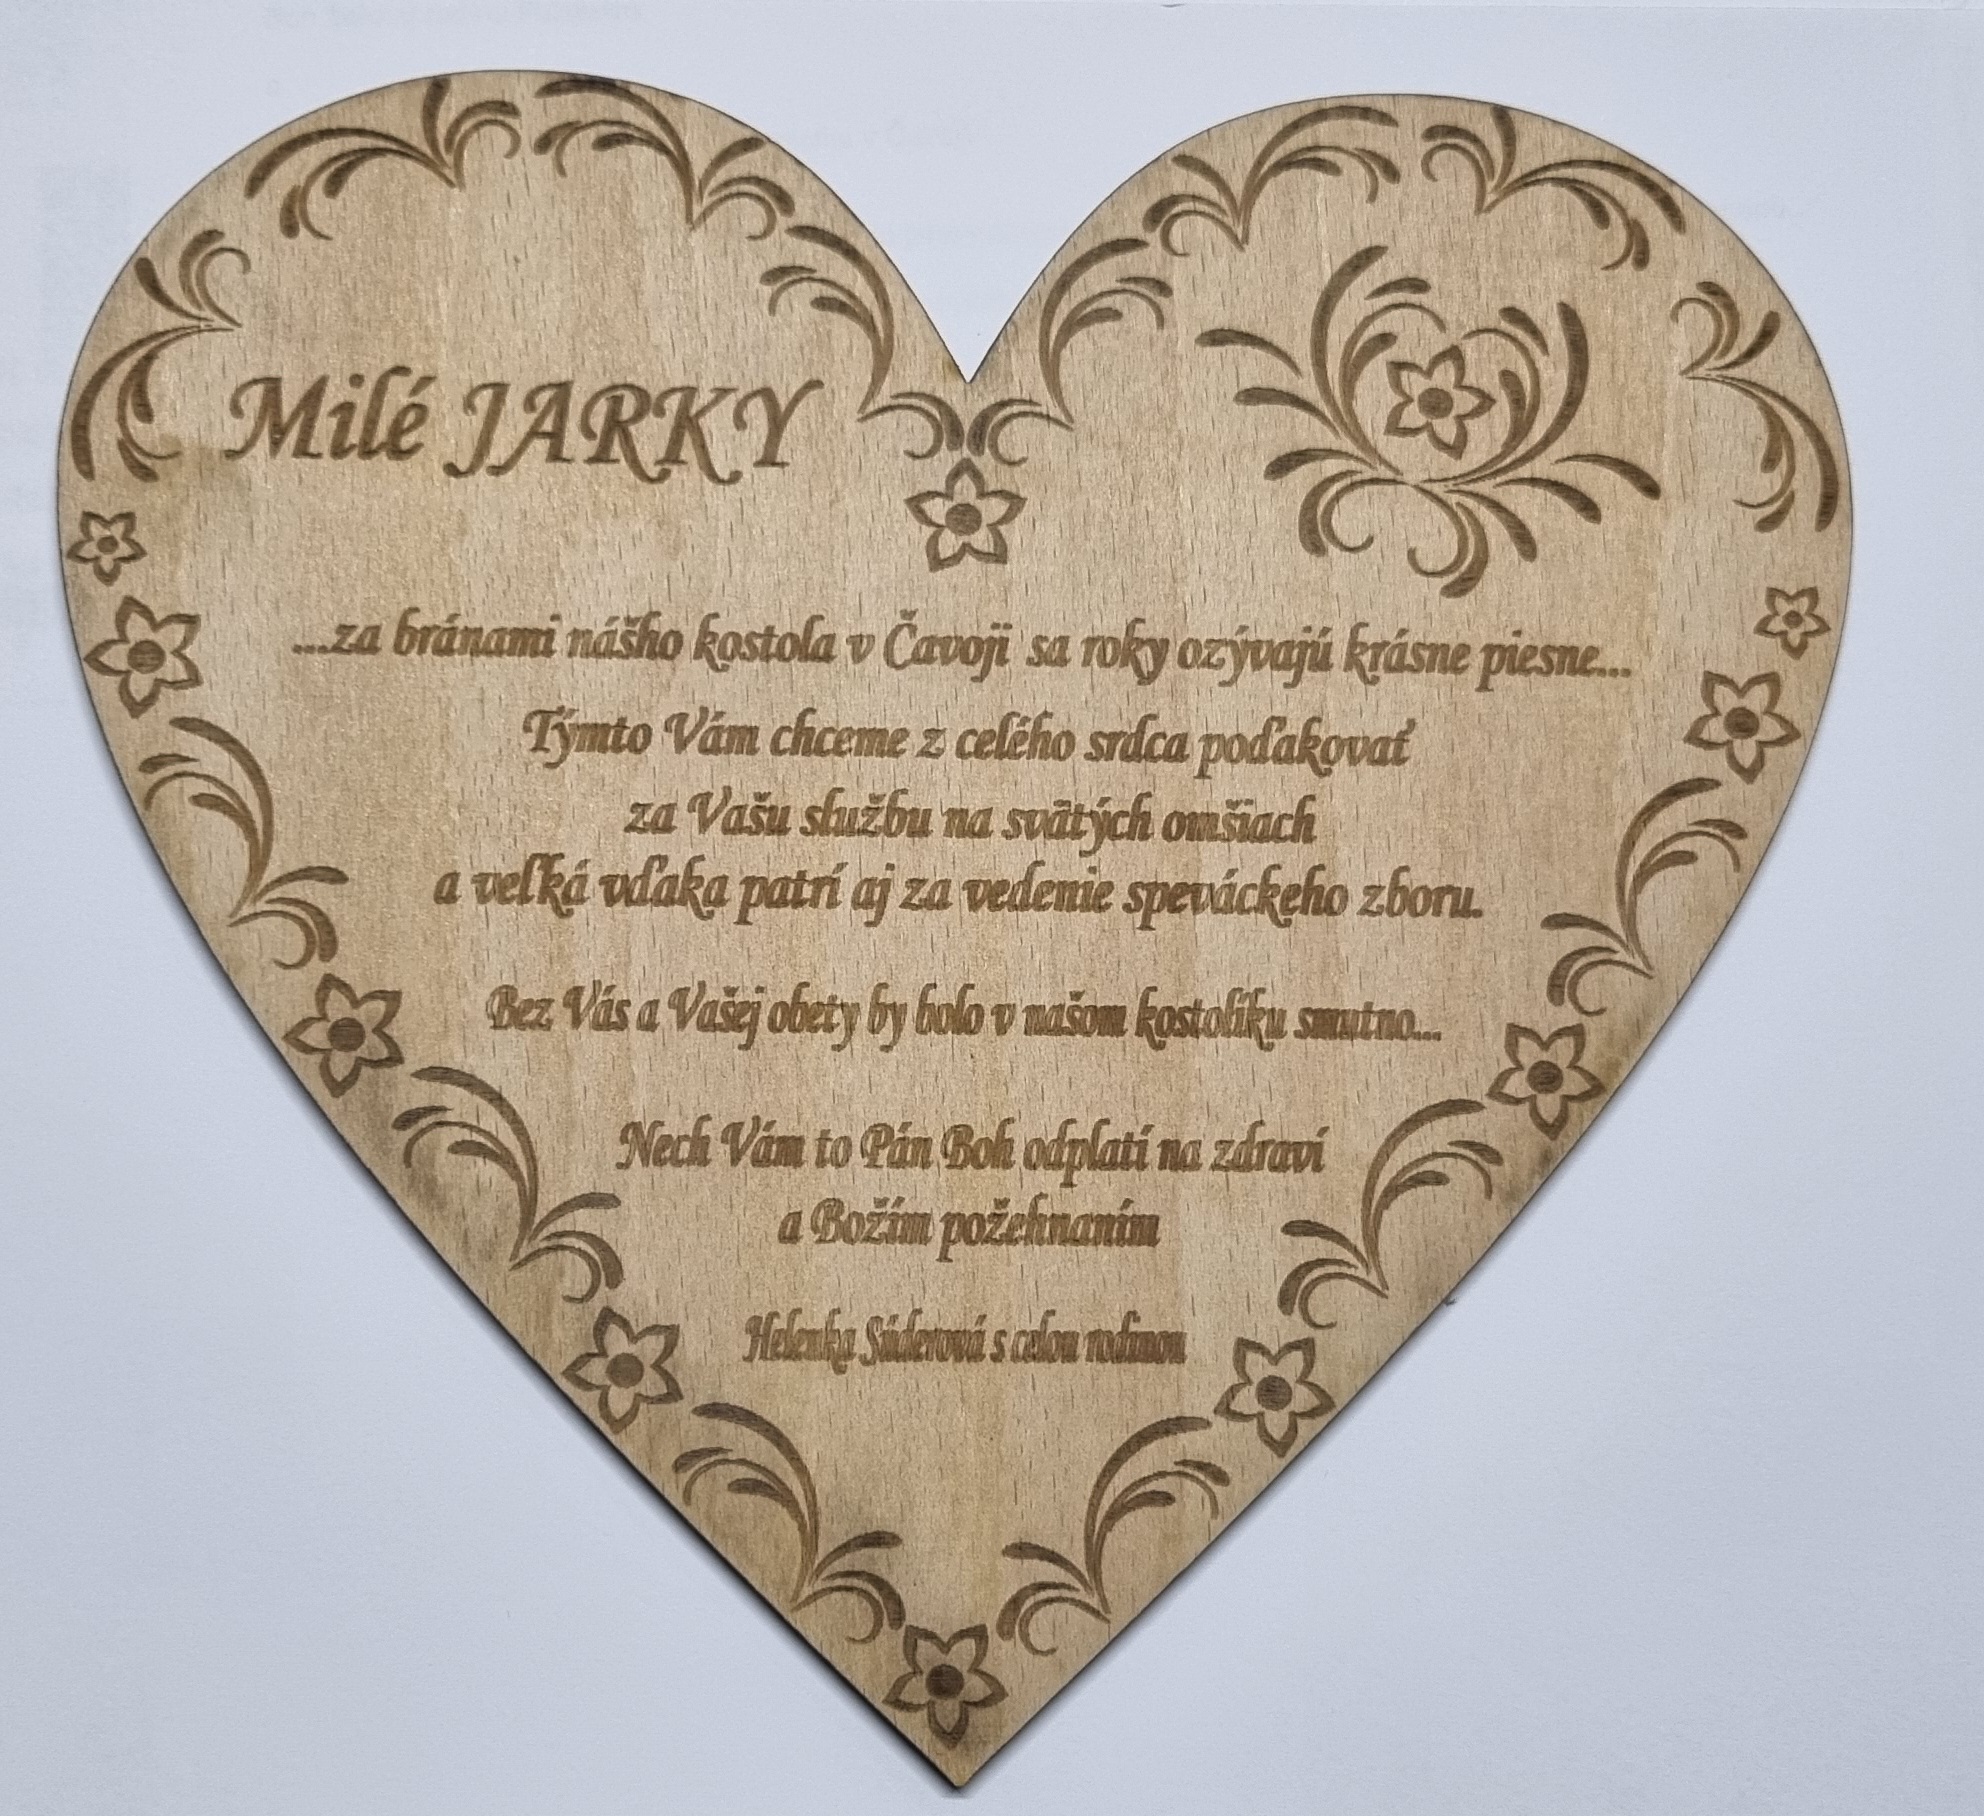 Milé JARKY
...za bránami nášho kostola v Čavoji sa roky ozývajú krásne piesne...
Týmto Vám chceme z celého srdca poďakovať
za Vašu službu na svätých omšiach
a veľká vďaka patrí aj za vedenie speváckeho zboru.
Bez Vás a Vašej obety by bolo v našom kostolíku smutno...
Nech Vám to Pán Boh odplatí na zdraví
a Božím požehnaním
Helenka Súderová s celou rodinou